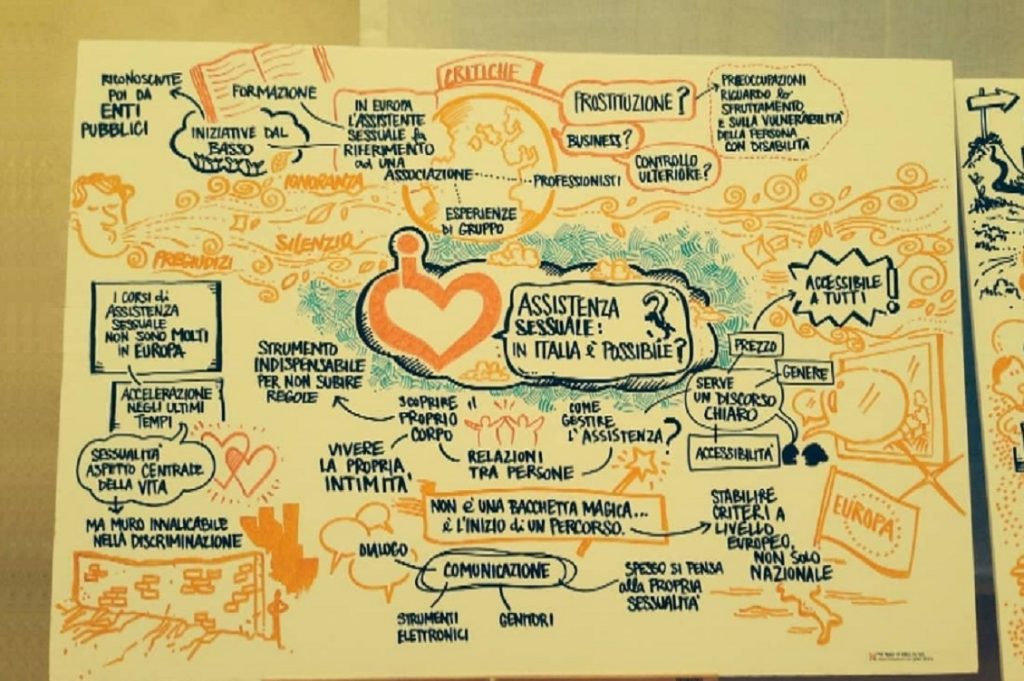 CRITICHE
RICONOSCIUTE
POI DA
ENTI
PUBBLICI
FORMAZIONE
INIZIATIVE DAL
BASSO
IN EUROPA
L'ASSISTENTE
SESSUALE fa
RIFERIMENTO
ad UNA
ASSOCIAZIONE
PROFESSIONISTI
ESPERIENZE
DI GRUPPO
PROSTITUZIONE?
BUSINESS?
CONTROLLO
ULTERIORE?
PREOCCUPAZIONI
RIGUARDO lo
SFRUTTAMENTO
E SULLA VULNERABILITÀ
DELLA PERSONA
CON DISABILITÀ
IGNORANZA
SILENZIO
PREGIUDIZI
ASSISTENZA
SESSUALE:
IN ITALIA È POSSIBILE?
?
ACCESSIBILE
A TUTTI!
PREZZO
GENERE
SERVE
UN DISCORSO
CHIARO
ACCESSIBILITÀ
I CORSI di
ASSISTENZA
SESSUALE
NON SONO MOLTI
IN EUROPA
ACCELERAZIONE
NEGLI ULTIMI
TEMPI
SESSUALITÀ
ASPETTO CENTRALE
DELLA VITA
MA MURO INVALICABILE
NELLA DISCRIMINAZIONE
STRUMENTO
INDISPENSABILE
PER NON SUBIRE
REGOLE
SCOPRIRE il
PROPRIO
CORPO
VIVERE
LA PROPRIA
INTIMITÀ
RELAZIONI
TRA PERSONE
COME
GESTIRE
L'ASSISTENZA?
NON È UNA BACCHETTA MAGICA...
È L'INIZIO di UN PERCORSO.
STABILIRE
CRITERI A
LIVELLO
EUROPEO,
NON SOLO
NAZIONALE
EUROPA
DIALOGO
COMUNICAZIONE
STRUMENTI
ELETTRONICI
GENITORI
SPESSO SI PENSA
alla PROPRIA
SESSUALITÀ